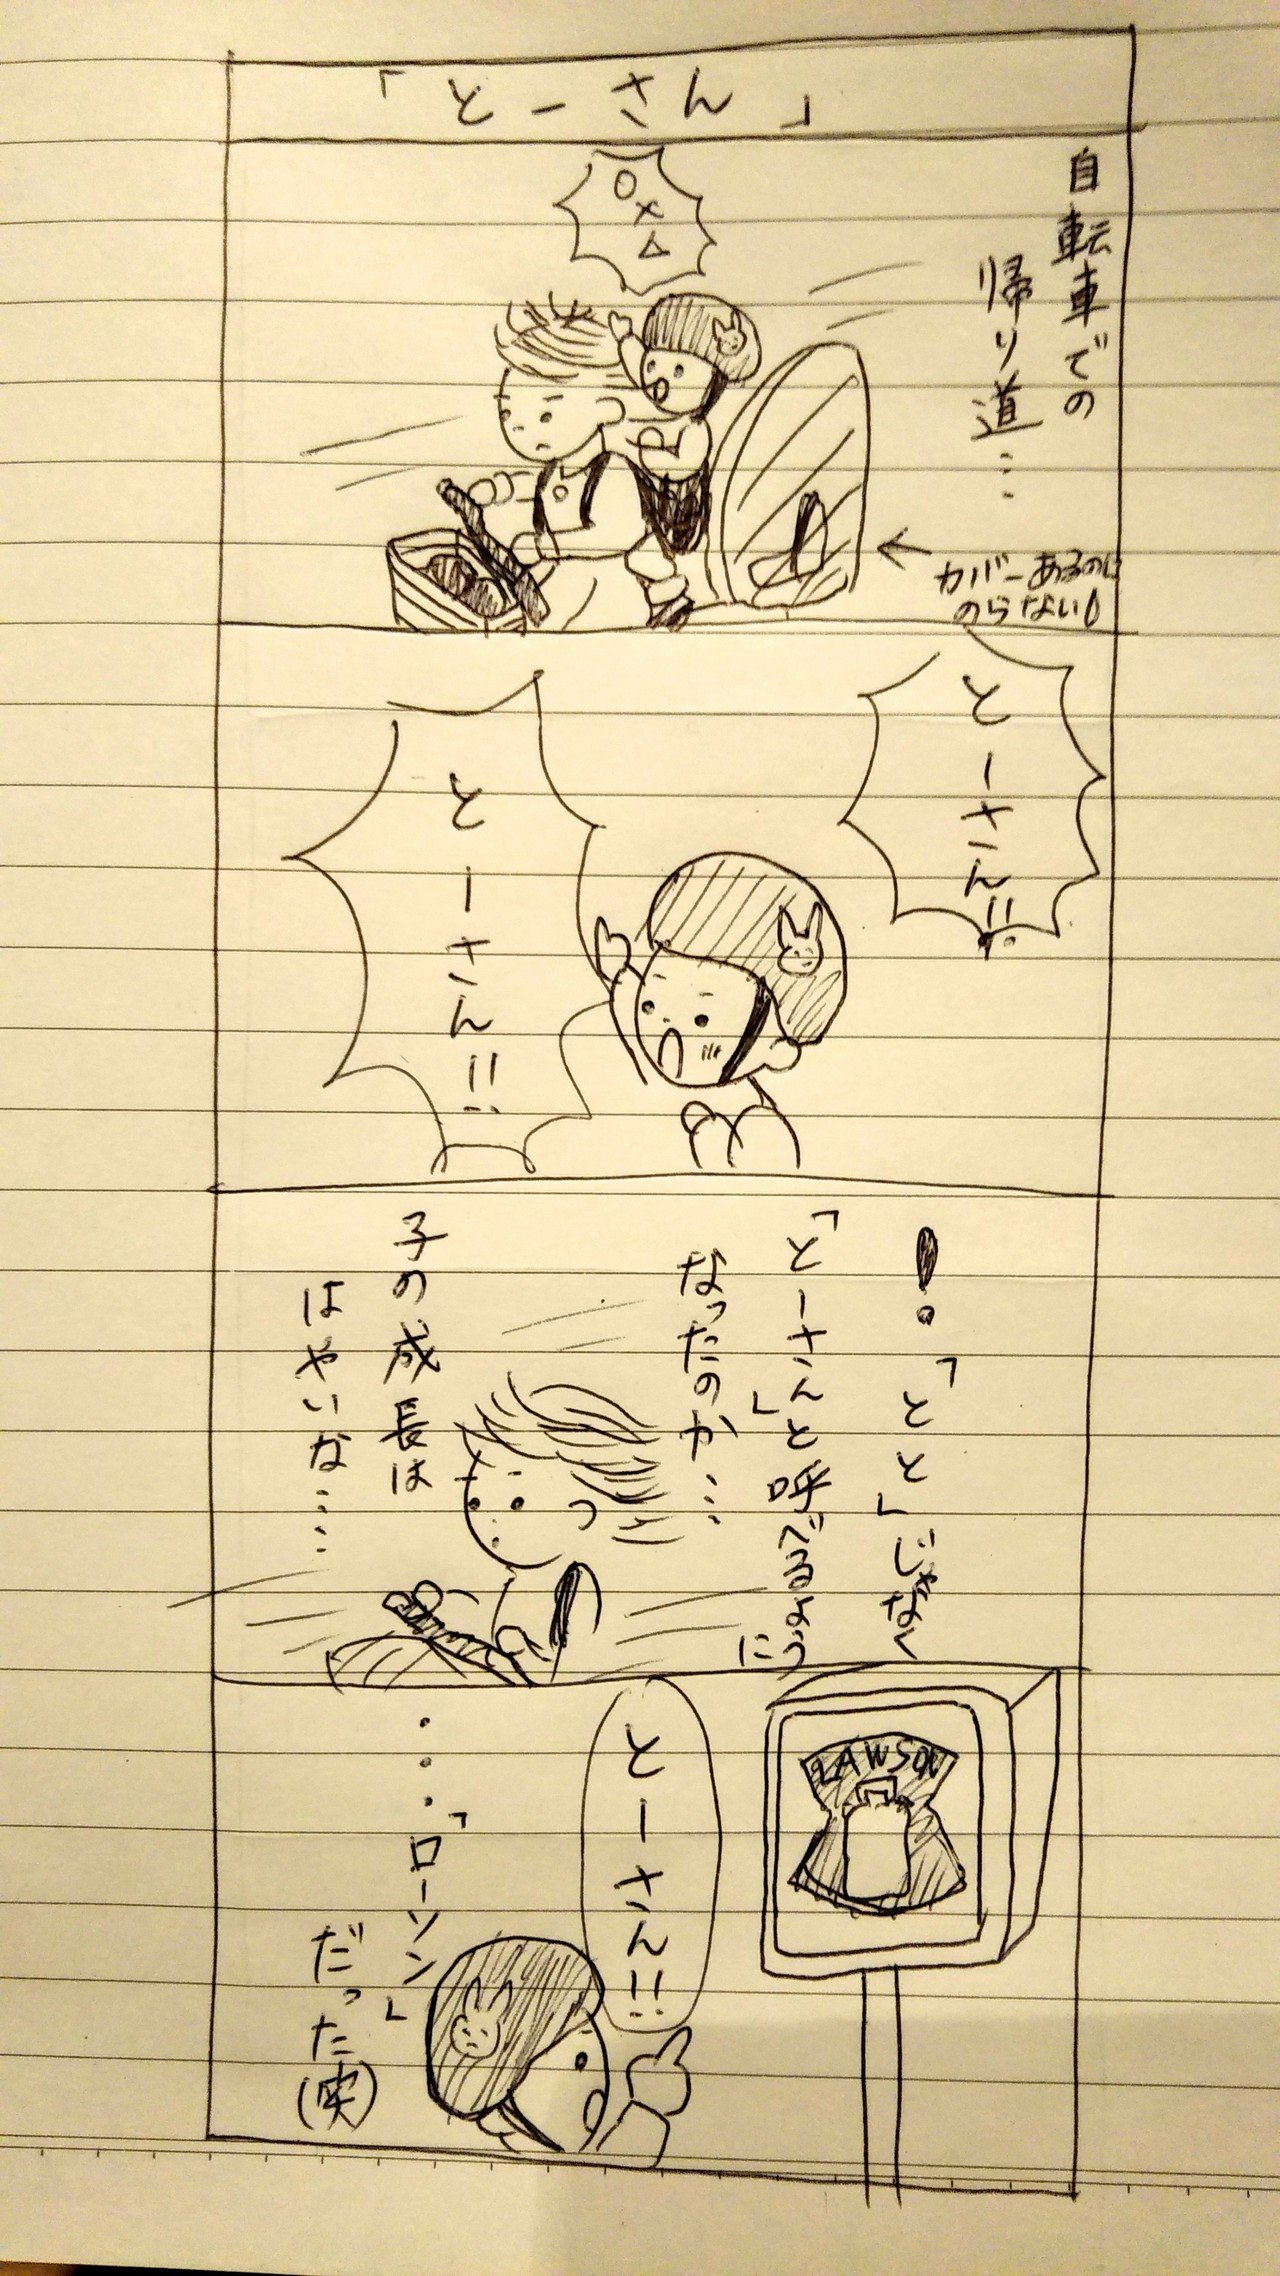 「とーさん」
自転車での
帰り道…
○×△
カバーあるのに
のらない
とーさん!!
とーさん!!
!。「とと」じゃなく
「とーさん」と呼べるように
なったのか…
子の成長は
はやいな……
LAWSON
とーさん!!
・・・「ローソン」
だった(実)